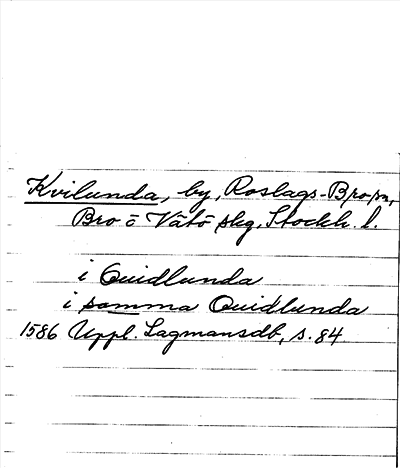 Kvilunda, by, Roslags-Bro sn,
Bro o Vätö skg, Stockh. l.
i Quidlunda
i samma Quidlunda
1586 Uppl. Lagmansdb, s. 84